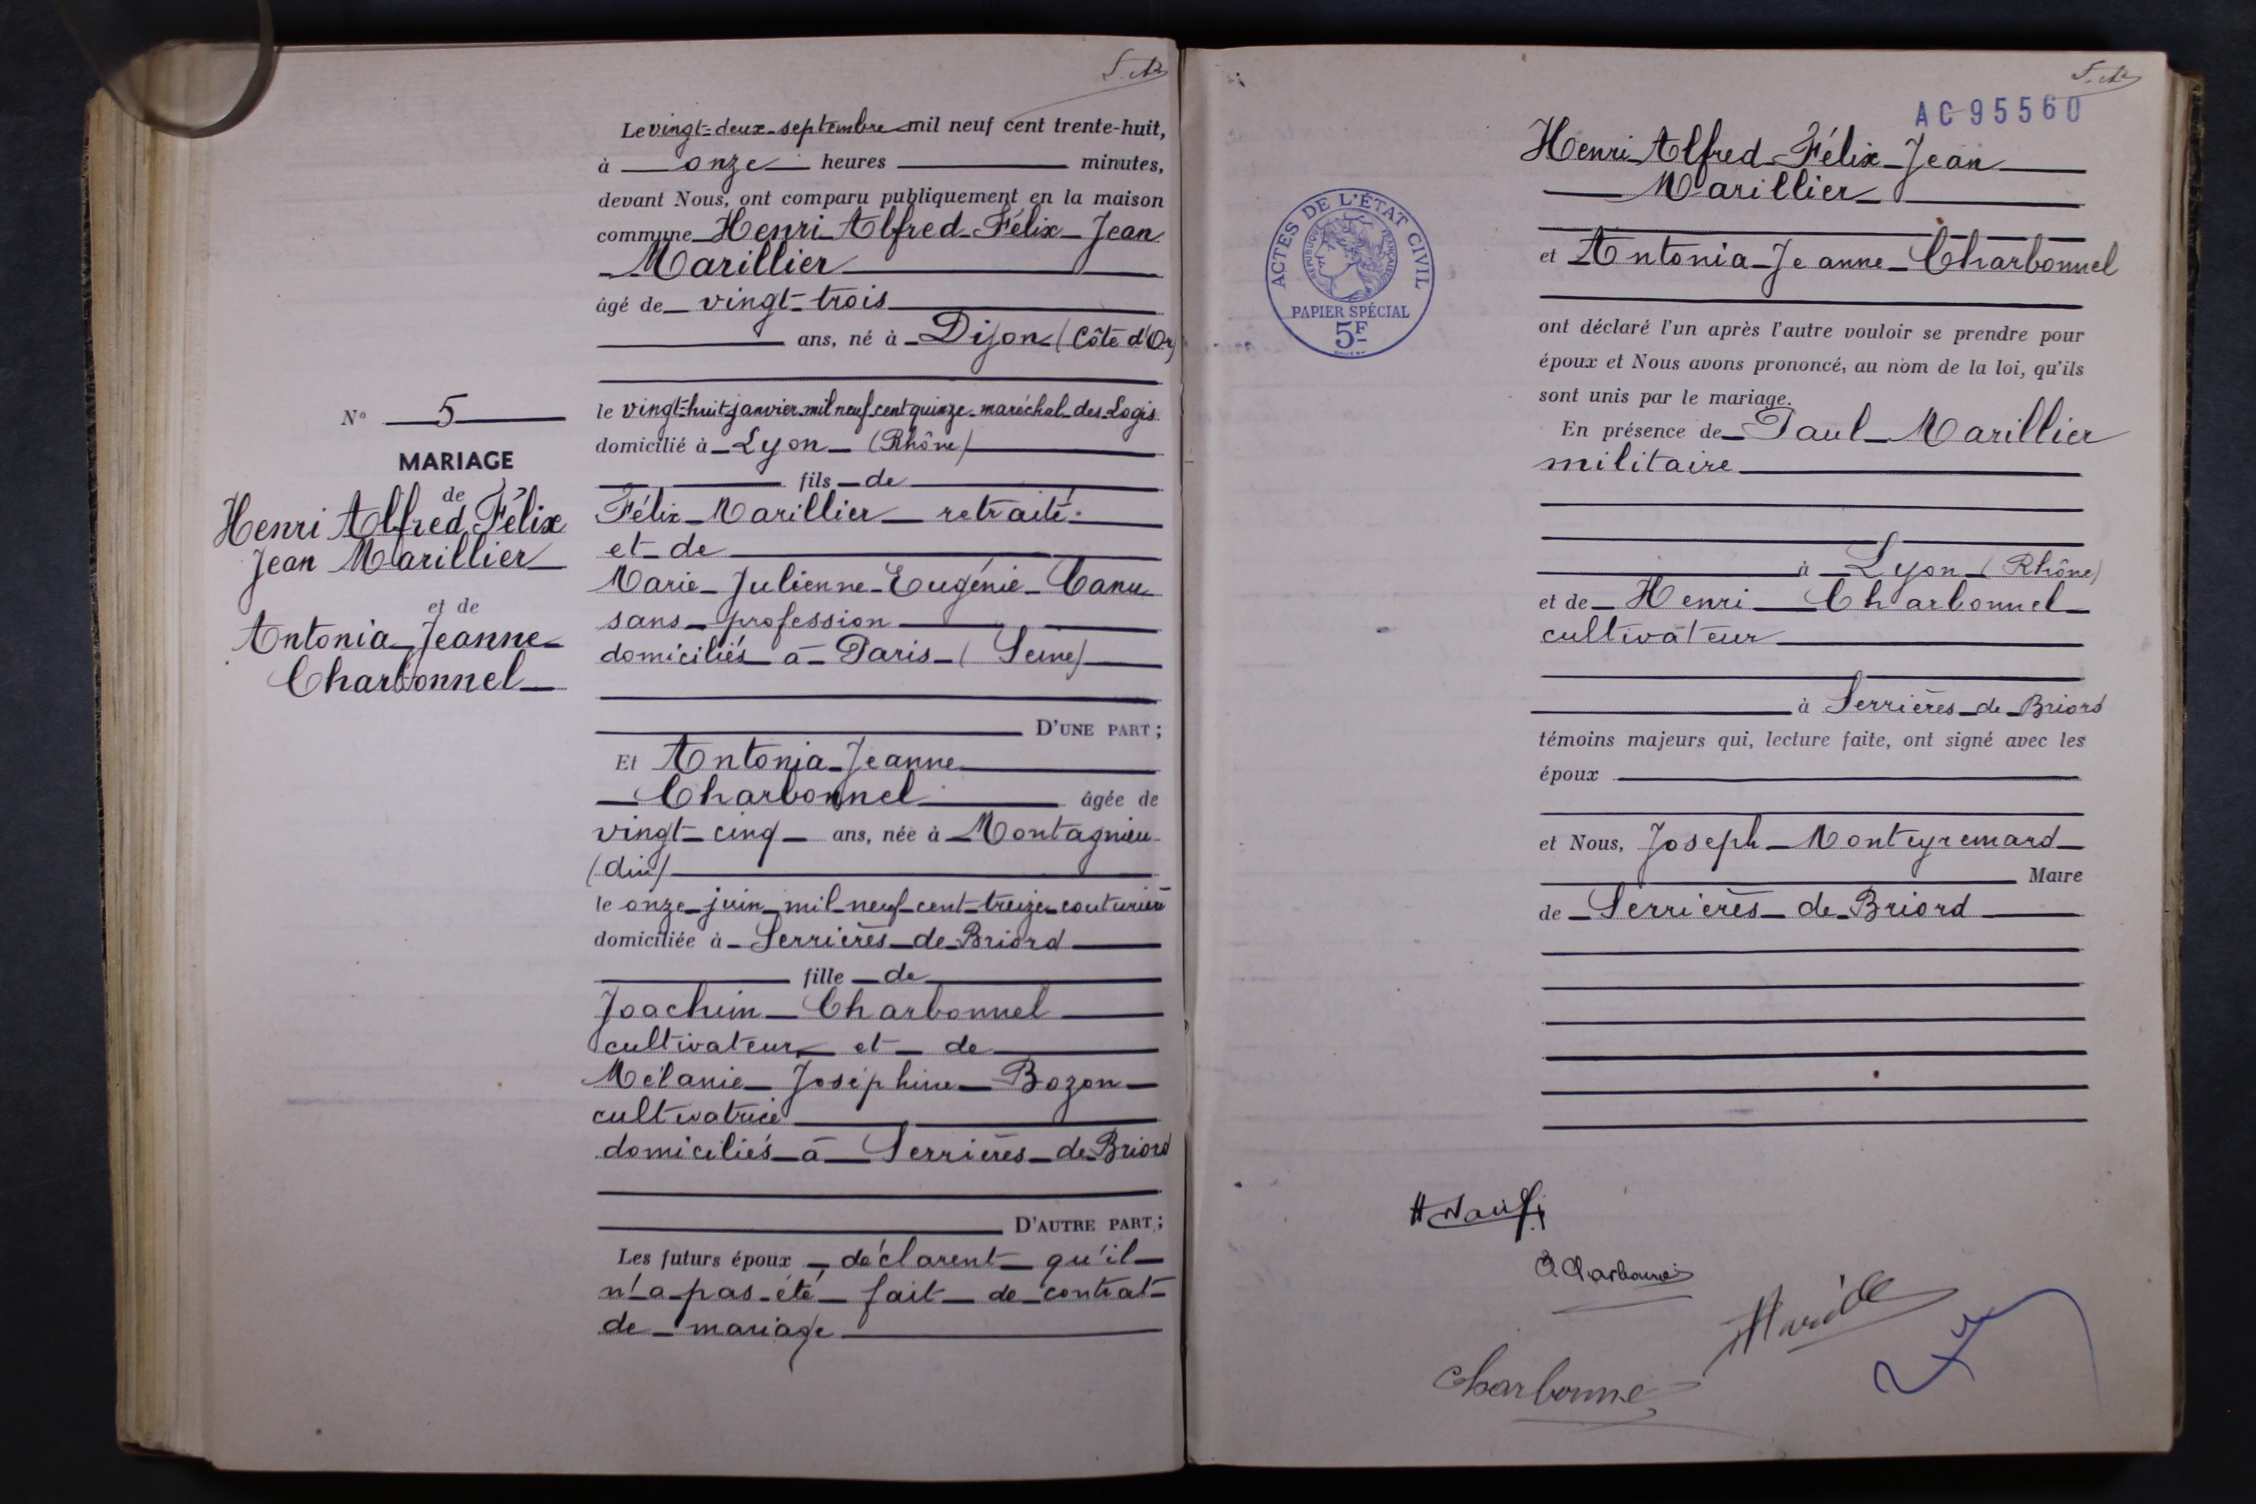 Le vingt-deux septembre mil neuf cent trente-huit,
à onze heures minutes,
devant Nous, ont comparu publiquement en la maison
commune Henri Alfred Félix Jean
Marillier
âgé de vingt-trois
ans, né à Dijon (Côte d'Or)
le vingt-huit janvier mil neuf cent quinze maréchal des Logis
domicilié à Lyon (Rhône)
fils de
Félix Marillier retraité
et de
Marie Julienne Eugénie Canu
sans profession
domiciliés à Paris (Seine)
D'UNE PART ;
Et Antonia Jeanne
Charbonnel âgée de
vingt-cinq ans, née à Montagnieu
(Ain)
le onze juin mil neuf cent treize couturière
domiciliée à Serrières de Briord
fille de
Joachim Charbonnel
cultivateur et de
Mélanie Joséphine Bozon
cultivatrice
domiciliés à Serrières de Briord
D'AUTRE PART ;
Les futurs époux déclarent qu'il
n'a pas été fait de contrat
de mariage
N° 5
MARIAGE
de
Henri Alfred Félix
Jean Marillier
et de
Antonia Jeanne
Charbonnel
AC 95560
ACTES DE L'ÉTAT CIVIL
RÉPUBLIQUE FRANÇAISE
PAPIER SPÉCIAL
5F
Henri Alfred Félix Jean
Marillier
et Antonia Jeanne Charbonnel
ont déclaré l'un après l'autre vouloir se prendre pour
époux et Nous avons prononcé, au nom de la loi, qu'ils
sont unis par le mariage.
En présence de Paul Marillier
militaire
à Lyon (Rhône)
et de Henri Charbonnel
cultivateur
à Serrières de Briord
témoins majeurs qui, lecture faite, ont signé avec les
époux
et Nous, Joseph Monteyremard
Maire
de Serrières de Briord
Charbonnel